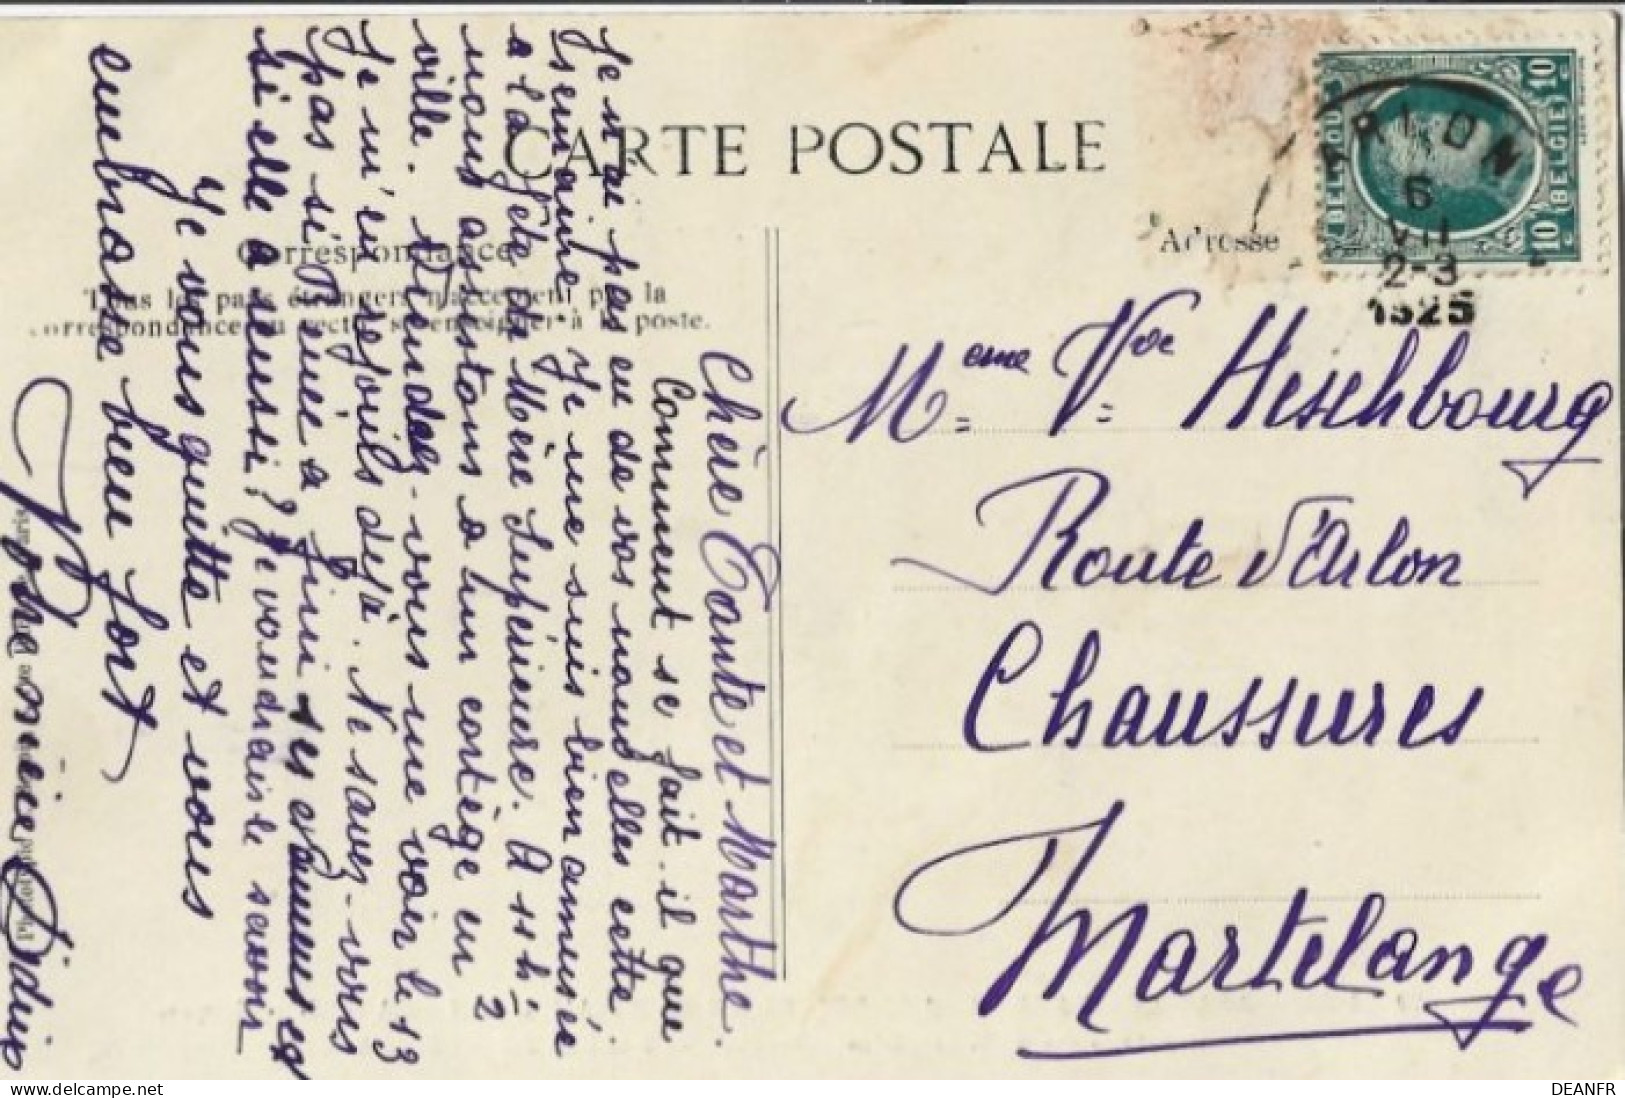 CARTE POSTALE
Correspondance
Adresse
Tous les pays étrangers n'acceptent pas la
correspondance au recto, se renseigner à la poste.
BELGIQUE
BELGIE
10 c
10 c
ARLON
6
VII
2-3
1925
Meme Vve Heschbourg
Route d'Arlon
Chaussures
Martelange
Chère Tante et Marthe.
Comment se fait-il que
Je n'ai pas eu de vos nouvelles cette
semaine. Je me suis bien amusée
a la fête de Mère Supérieure. A 11 h 1/2
nous assistons a un cortège en
ville. Viendez-vous me voir le 13
Je m'en rejouis dejà. Ne savez-vous
pas si Renée a fini ses examens et
si elle a reussi? Je voudrais le savoir
Je vous quitte et vous
embrasse bien fort
Votre nièce
DEANFR